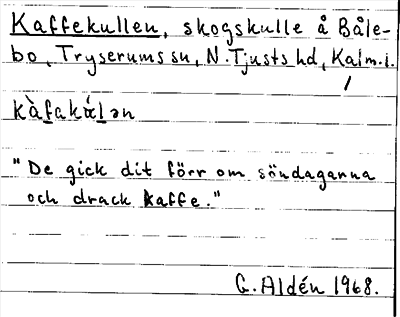 Kaffekullen, skogskulle å Båle-
bo, Tryserums sn, N. Tjusts hd, Kalm. l.
"De gick dit förr om söndagarna
och drack kaffe."
G. Aldén 1968.